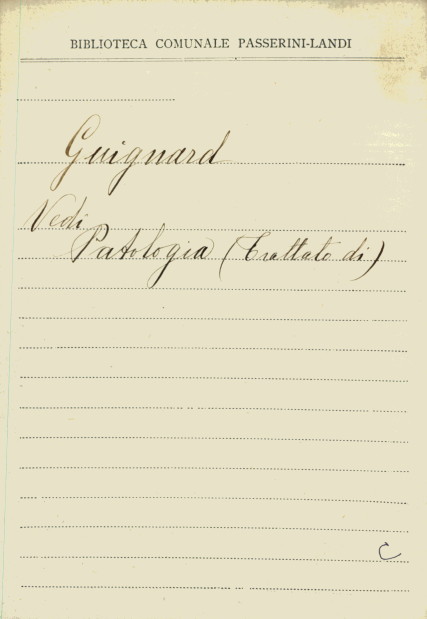 BIBLIOTECA COMUNALE PASSERINI-LANDI
Guignard
Vedi
Patologia (Trattato di)
C